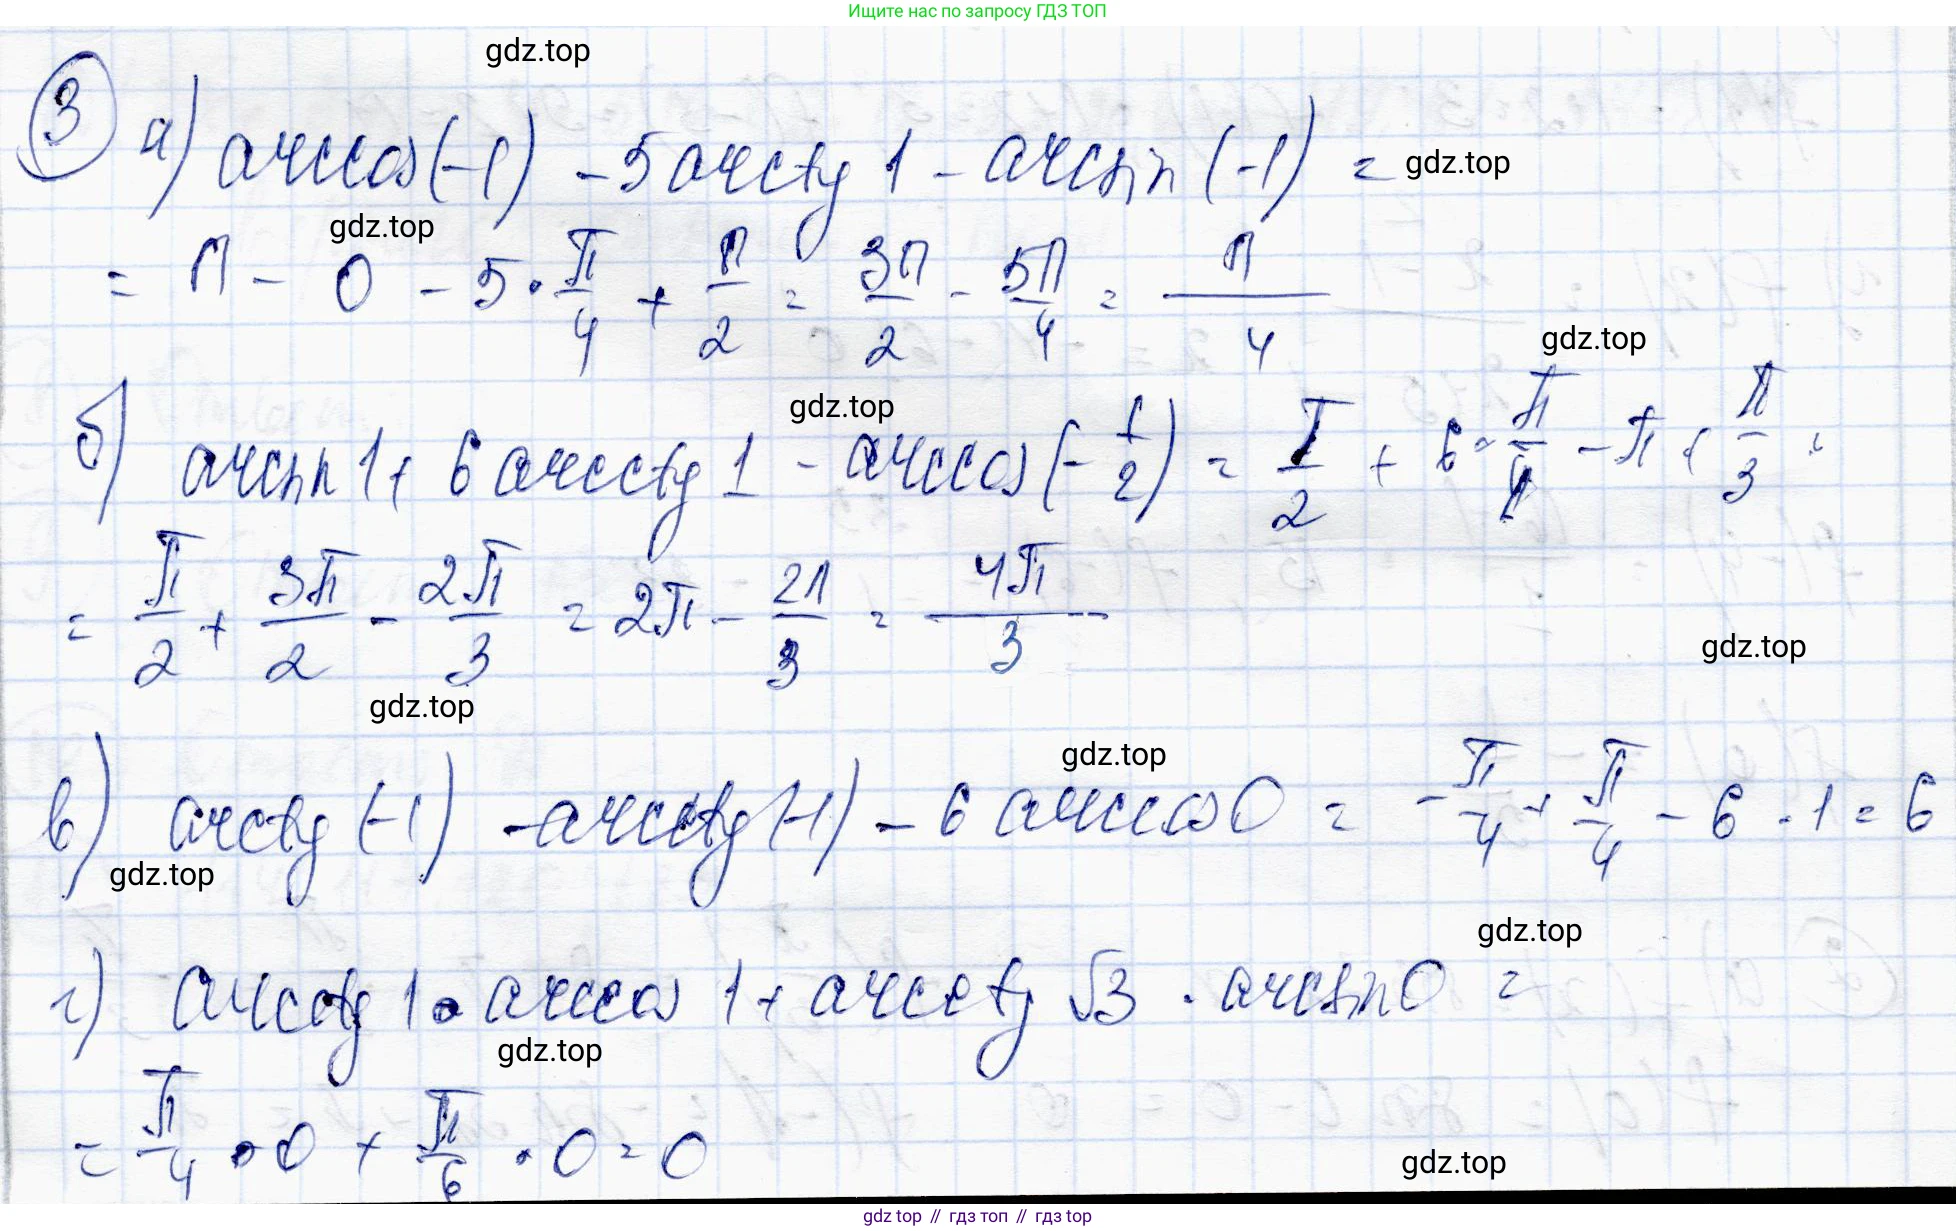 Ищите нас по запросу ГДЗ ТОП
gdz.top
3 а) arccos(-1) - 5 arctg 1 - arcsin(-1) = gdz.top
gdz.top
= π - 0 - 5 · π/4 + π/2 = 3π/2 - 5π/4 = π/4
gdz.top
gdz.top
б) arcsin 1 + 6 arcctg 1 - arccos(-1/2) = π/2 + 6 · π/4 - π + π/3 =
= π/2 + 3π/2 - 2π/3 = 2π - 2π/3 = 4π/3
gdz.top
gdz.top
gdz.top
в) arctg(-1) - arcctg(-1) - 6 arccos 0 = -π/4 + π/4 - 6 · 1 = 6
gdz.top
gdz.top
г) arcctg 1 · arccos 1 + arcctg √3 · arcsin 0 =
gdz.top
= π/4 · 0 + π/6 · 0 = 0
gdz.top
gdz top // гдз топ // гдз top